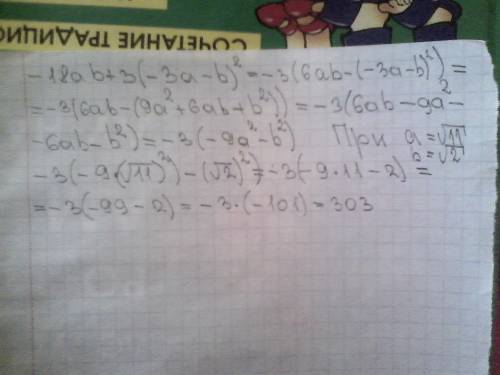 СОЧЕТАНИЕ ТРАДИЦИО
-18ab+3(-3a-b)²=-3(6ab-(-3a-b)²)=
=-3(6ab-(9a²+6ab+b²))=-3(6ab-9a²-
-6ab-b²)=-3(-9a²-b²) При a=√11
b=√2
-3(-9·(√11)²)-(√2)²)=-3(-9·11-2)=
=-3(-99-2)=-3·(-101)=303